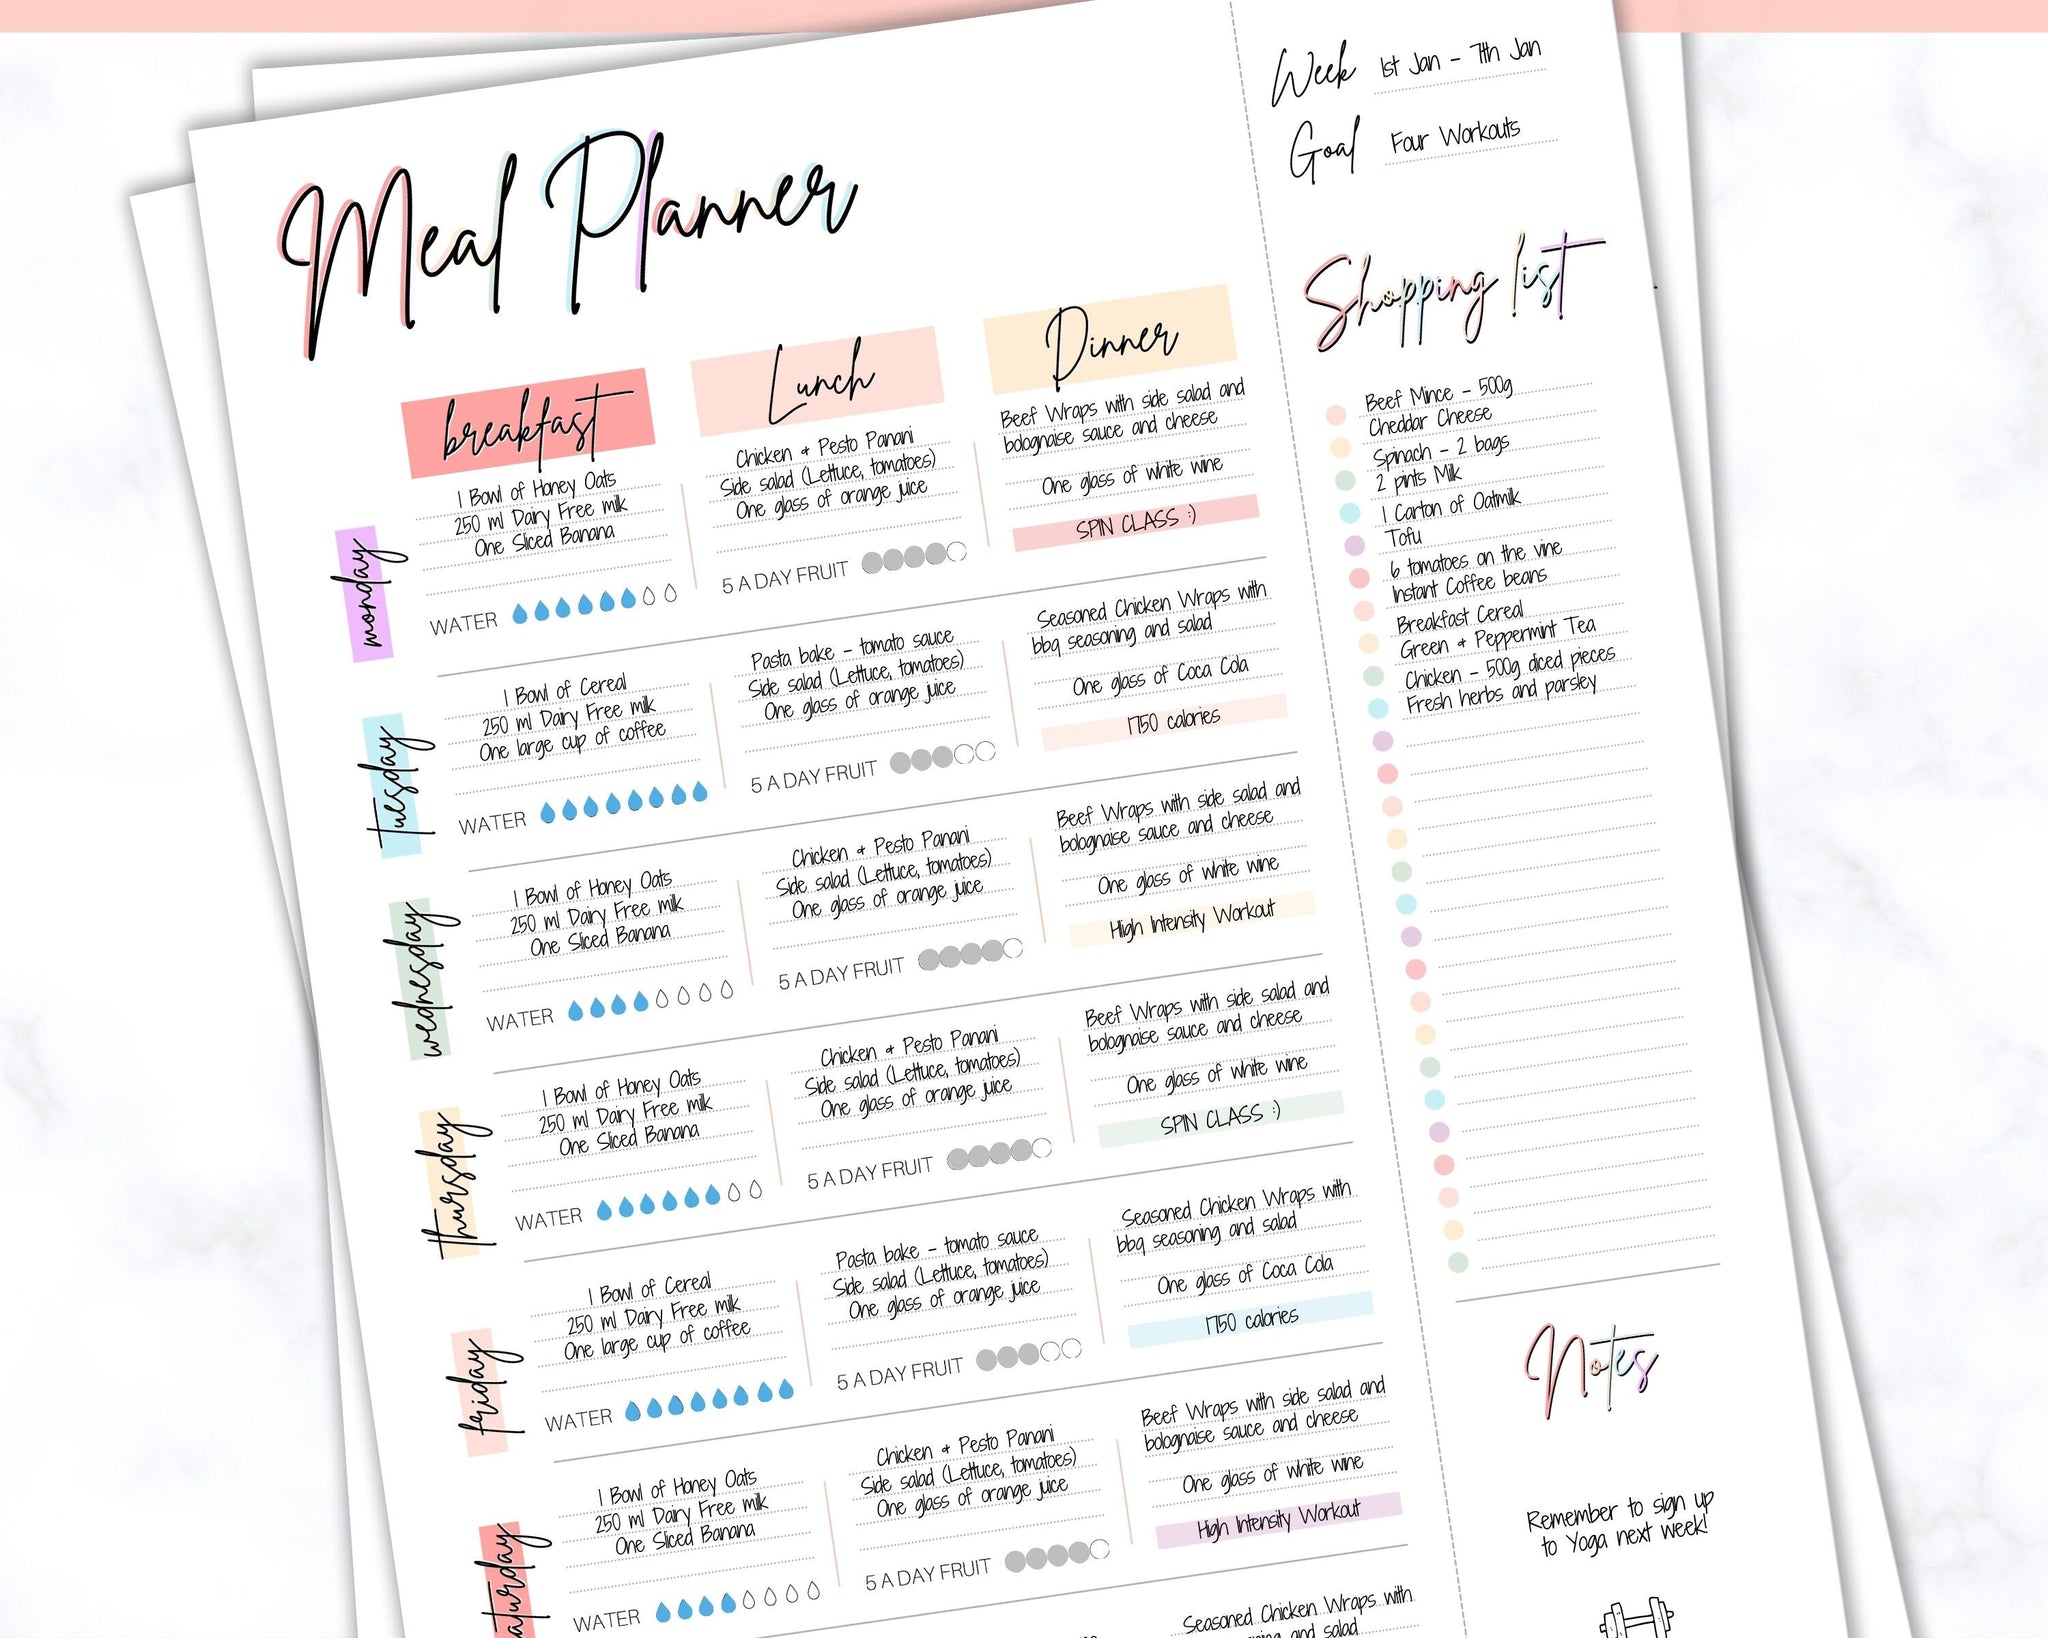 Meal Planner
Week 1st Jan - 7th Jan
Goal Four Workouts
breakfast
Lunch
Dinner
monday
1 Bowl of Honey Oats
250 ml Dairy Free milk
One Sliced Banana
WATER
Chicken + Pesto Panani
Side salad (Lettuce, tomatoes)
One glass of orange juice
5 A DAY FRUIT
Beef Wraps with side salad and
bolognaise sauce and cheese
One glass of white wine
SPIN CLASS :)
tuesday
1 Bowl of Cereal
250 ml Dairy Free milk
One large cup of coffee
WATER
Pasta bake - tomato sauce
Side salad (Lettuce, tomatoes)
One glass of orange juice
5 A DAY FRUIT
Seasoned Chicken Wraps with
bbq seasoning and salad
One glass of Coca Cola
1750 calories
wednesday
1 Bowl of Honey Oats
250 ml Dairy Free milk
One Sliced Banana
WATER
Chicken + Pesto Panani
Side salad (Lettuce, tomatoes)
One glass of orange juice
5 A DAY FRUIT
Beef Wraps with side salad and
bolognaise sauce and cheese
One glass of white wine
High Intensity Workout
thursday
1 Bowl of Honey Oats
250 ml Dairy Free milk
One Sliced Banana
WATER
Chicken + Pesto Panani
Side salad (Lettuce, tomatoes)
One glass of orange juice
5 A DAY FRUIT
Beef Wraps with side salad and
bolognaise sauce and cheese
One glass of white wine
SPIN CLASS :)
friday
1 Bowl of Cereal
250 ml Dairy Free milk
One large cup of coffee
WATER
Pasta bake - tomato sauce
Side salad (Lettuce, tomatoes)
One glass of orange juice
5 A DAY FRUIT
Seasoned Chicken Wraps with
bbq seasoning and salad
One glass of Coca Cola
1750 calories
aturday
1 Bowl of Honey Oats
250 ml Dairy Free milk
One Sliced Banana
WATER
Chicken + Pesto Panani
Side salad (Lettuce, tomatoes)
One glass of orange juice
5 A DAY FRUIT
Beef Wraps with side salad and
bolognaise sauce and cheese
One glass of white wine
High Intensity Workout
Seasoned Chicken Wraps with
and salad
Shopping list
Beef Mince - 500g
Cheddar Cheese
Spinach - 2 bags
2 pints Milk
1 Carton of Oatmilk
Tofu
6 tomatoes on the vine
Instant Coffee beans
Breakfast Cereal
Green + Peppermint Tea
Chicken - 500g diced pieces
Fresh herbs and parsley
Notes
Remember to sign up
to Yoga next week!